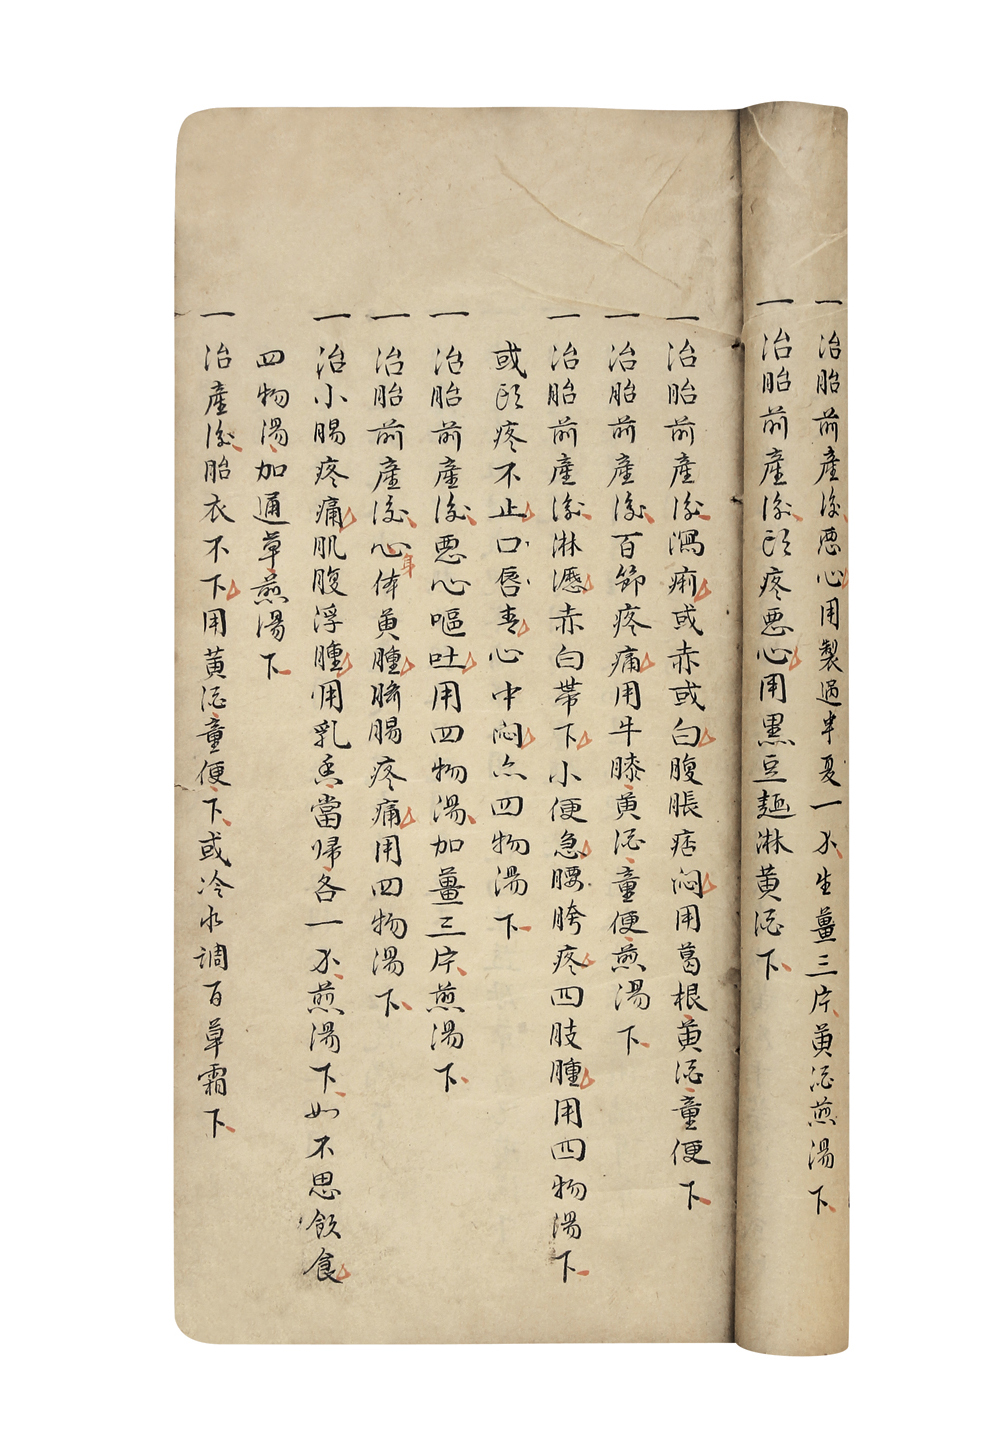 一治胎前產後悪心用製過半夏一分生薑三片黄酒煎湯下
一治胎前產後头疼悪心用黑豆麺淋黄酒下
一治胎前產後瀉痢或赤或白腹脹痞悶用葛根黄酒童便下
一治胎前產後百節疼痛用牛膝黄酒童便煎湯下
一治胎前產後淋瀝赤白帶下小便急腰胯疼四肢腫用四物湯下
或头疼不止口唇青心中悶亦四物湯下
一治胎前產後悪心嘔吐用四物湯加薑三片煎湯下
一治胎前產後心身体黄腫臍腸疼痛用四物湯下
一治小腸疼痛肌腹浮腫用乳香當歸各一分煎湯下如不思飲食
四物湯加通草煎湯下
一治產後胎衣不下用黄酒童便下或冷水調百草霜下